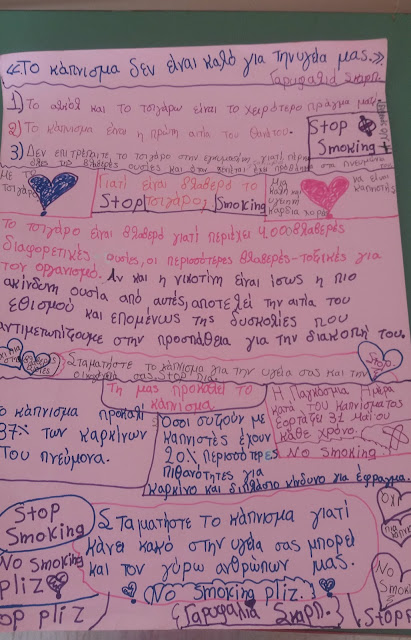 «Το κάπνισμα δεν είναι καλό για την υγεία μας.»
Γαρυφαλιά Σκαρπ.
1) Το αλκοόλ και το τσιγάρο είναι το χειρότερο πράγμα μαζί
2) Το κάπνισμα είναι η πρώτη αιτία του θανάτου.
3) Δεν επιτρέπεται το τσιγάρο στην εγκυμοσύνη γιατί
Stop
Smoking
Με το
τσιγάρο
Γιατί είναι βλαβερό το
Stop τσιγάρο; Smoking
Μια
καλή και
υγιινή
καρδιά χωρίς
να είναι
καπνιστής
Το τσιγάρο είναι βλαβερό γιατί περιέχει 4.000 βλαβερές
διαφορετικές ουσίες, οι περισσότερες βλαβερές-τοξικές για
τον οργανισμό. Αν και η νικοτίνη είναι ίσως η πιο
ακίνδυνη ουσία από αυτές, αποτελεί την αιτία του
εθισμού και επομένως της δυσκολίες που
αντιμετωπίζουμε στην προσπάθεια για την διακοπή του.
Σταματήστε το κάπνισμα για την υγεία σας και την
Stop
Τη μας προκαλεί το
κάπνισμα
Το κάπνισμα προκαλεί
87% των καρκίνων
του πνεύμονα.
Όσοι συζούν με
καπνιστές έχουν
20% περισσότερες
πιθανότητες για
καρκίνο και διπλάσιο κίνδυνο για έφραγμα.
Η Παγκόσμια Ημέρα
κατά του καπνίσματος
εορτάζει 31 Μαΐου
κάθε χρόνο.
No Smoking
Stop
Smoking
No Smoking
pliz
Stop pliz
Σταματήστε το κάπνισμα γιατί
κάνει κακό στην υγεία σας μπορεί
και τον γύρω ανθρώπων μας.
No Smoking pliz.
Γαρυφαλιά Σκαρπ.
Όχι
No
Smoking
Stop